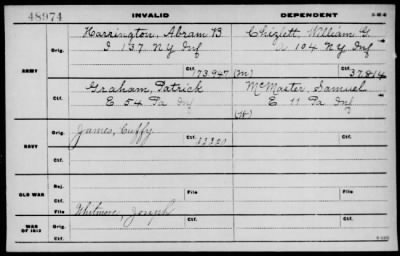 48974 INVALID DEPENDENT
Harrington, Abram B Chizlett, William G
Orig. I 137 N.Y. Inf A 104 N.Y. Inf
ARMY Ctf. 173,947 (m) Ctf. 37,814
Graham, Patrick McMaster, Samuel
Ctf. E 54 Pa Inf E 11 Pa Inf
James, Cuffy
Orig. Ctf.
NAVY
Ctf.
Rej.
OLD WAR Ctf. File File
File Whitmore, Joseph
WAR OF 1812 Orig. Ctf. Ctf.